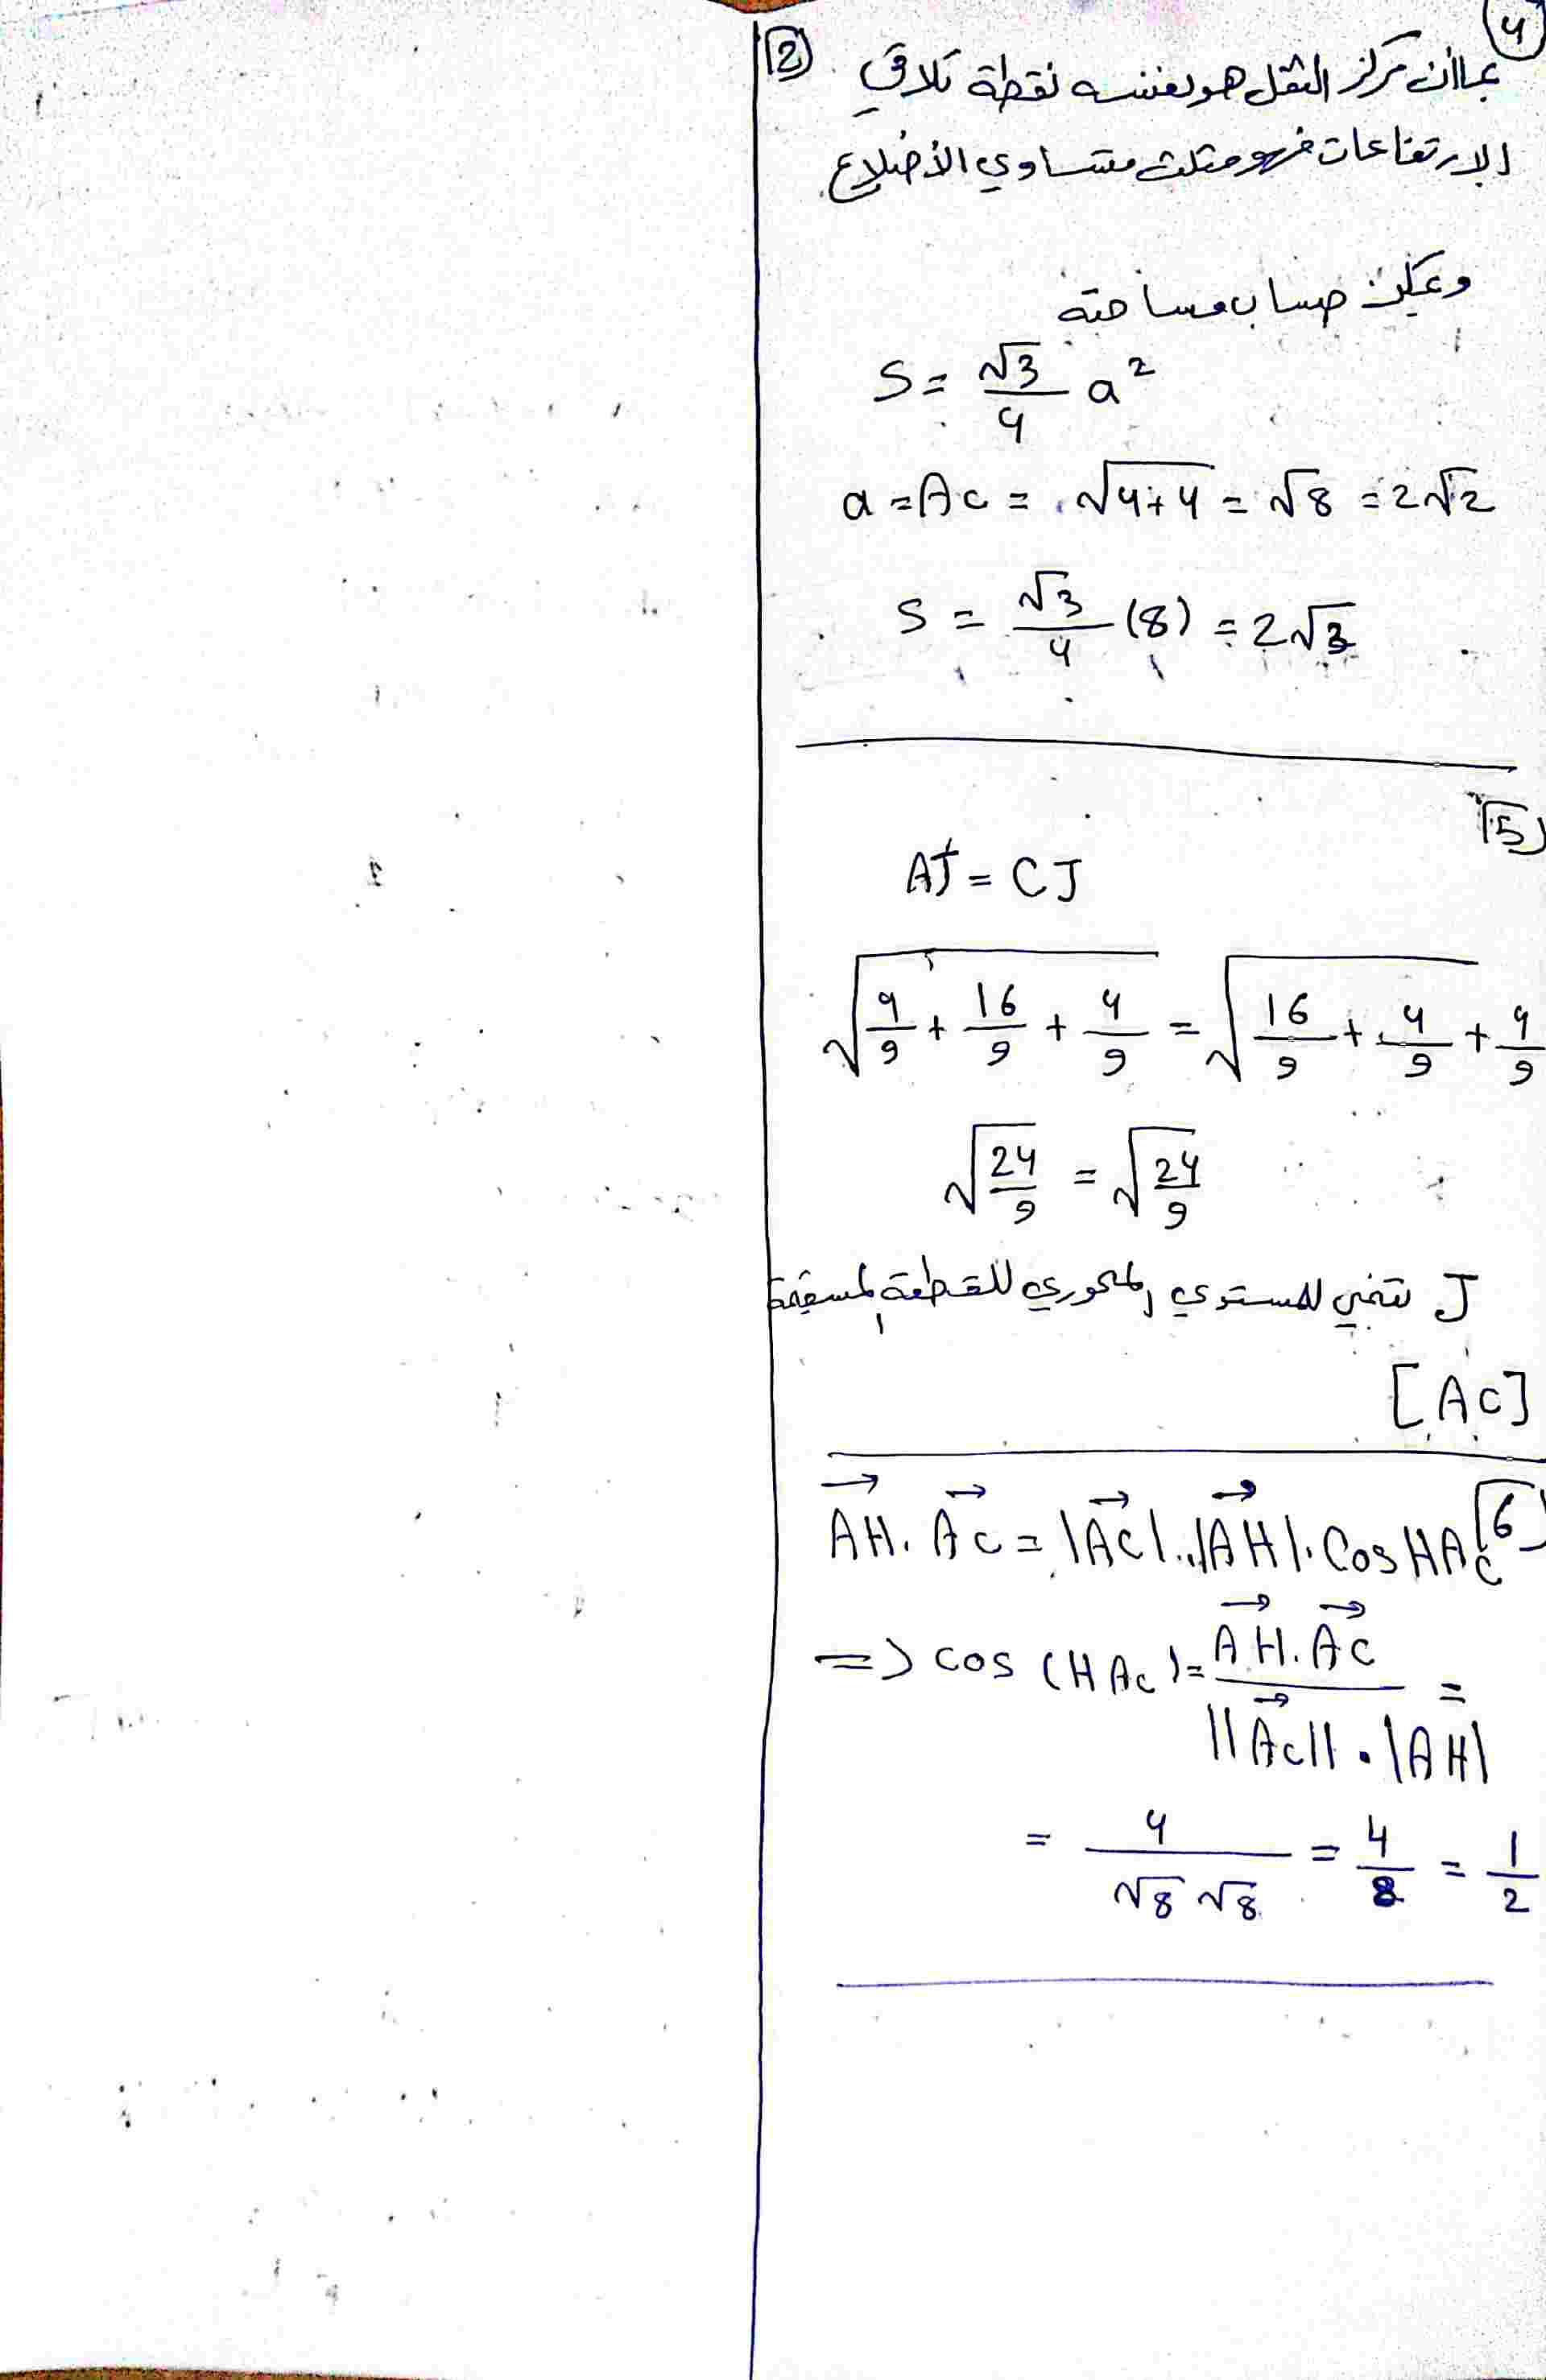 4
2
بما أن مركز الثقل هو نفسه نقطة تلاقي
الارتفاعات فهو مثلث متساوي الأضلاع.
ويمكن حساب مساحته
S = √3/4 a²
a = AC = √(4+4) = √8 = 2√2
S = √3/4 (8) = 2√3
5
AJ = CJ
√(4/9 + 16/9 + 4/9) = √(16/9 + 4/9 + 4/9)
√(24/9) = √(24/9)
J تنتمي للمستوي المحوري للقطعة المستقيمة
[AC]
6
AH⃗ . AC⃗ = |AC⃗| . |AH⃗| . Cos HAC
=> cos (HAC) = AH⃗ . AC⃗ / ||AC⃗|| . |AH| =
= 4/(√8 √8) = 4/8 = 1/2